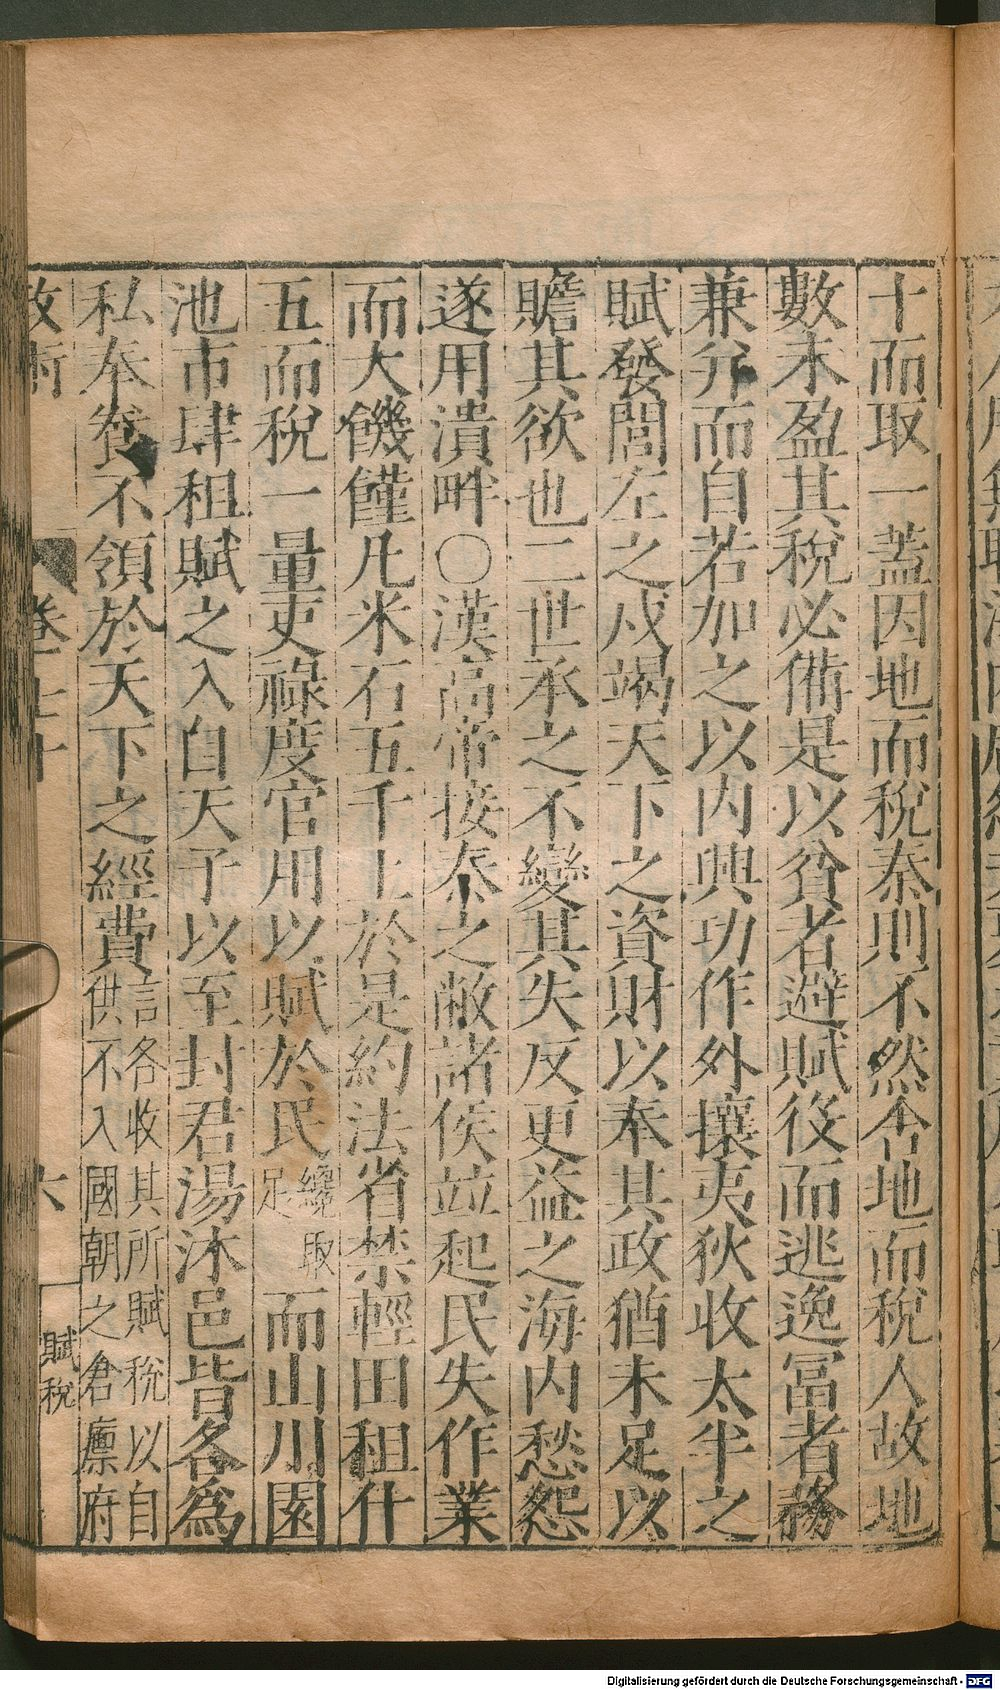 十而取一蓋因地而稅秦則不然舍地而稅人故地
數未盈其稅必備是以貧者避賦役而逃逸冨者務
兼并而自若加之以内興功作外攘夷狄收太半之
賦發閭左之戍竭天下之資財以奉其政猶未足以
贍其欲也二世承之不變其失反更益之海内愁怨
遂用潰畔○漢高帝接秦之敝諸侯並起民失作業
而大饑饉凡米石五千上於是約法省禁輕田租什
五而稅一量吏祿度官用以賦於民纔取足而山川園
池市肆租賦之入自天子以至封君湯沐邑皆各為
私奉養不領於天下之經費言各收其所賦稅以自供不入國朝之倉廩府
卷 六 賦稅
Digitalisierung gefördert durch die Deutsche Forschungsgemeinschaft - DFG